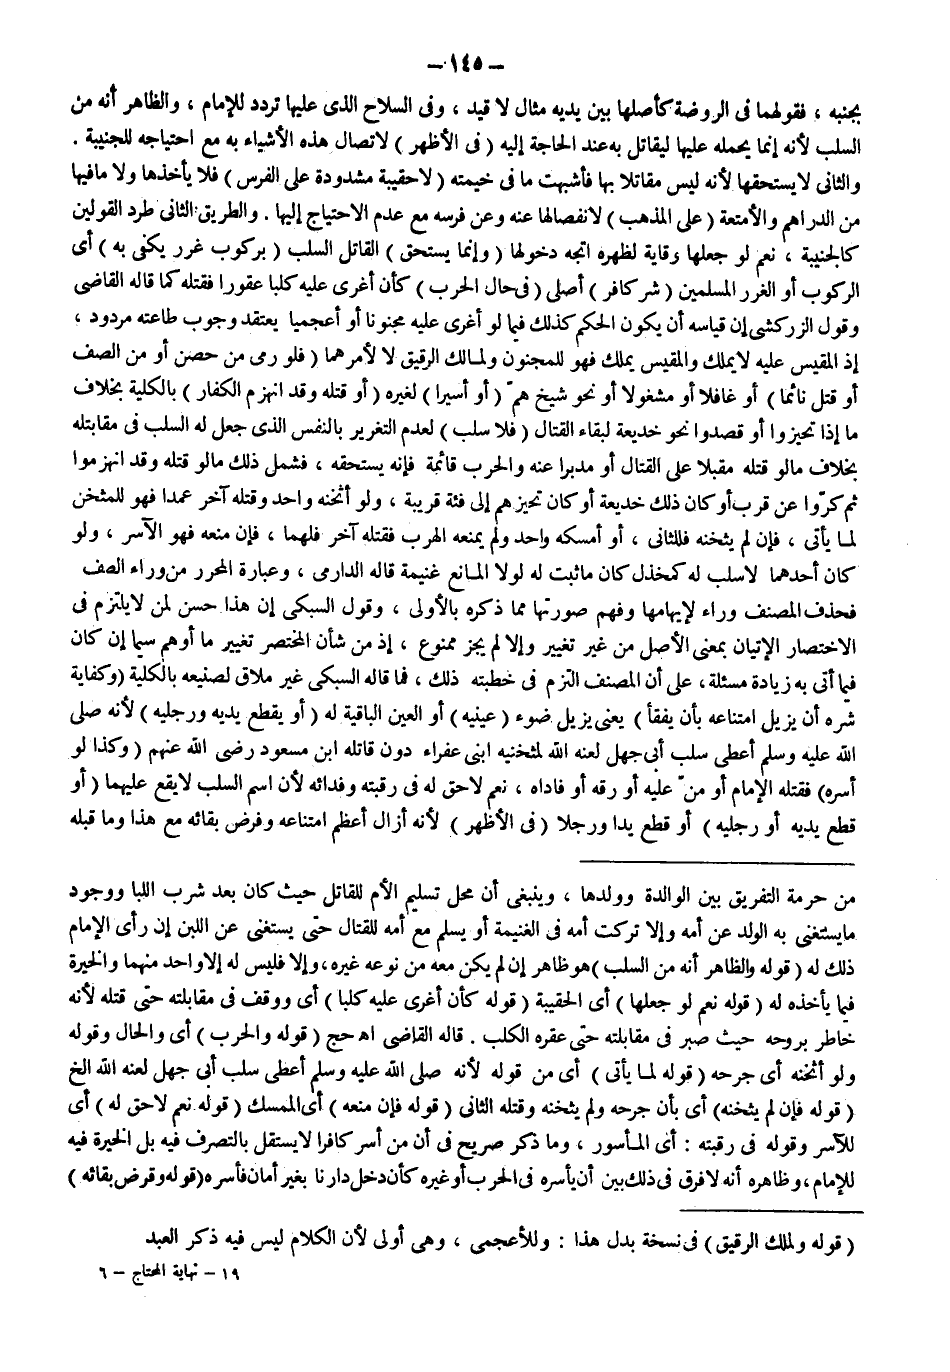 – ١٤٥ –
بجنبه ، فقولهما فى الروضة كأصلها بين يديه مثال لا قيد ، وفى السلاح الذى عليها تردد للإمام ، والظاهر أنه من
السلب لأنه إنما يحمله عليها ليقاتل به عند الحاجة إليه ( فى الأظهر ) لاتصال هذه الأشياء به مع احتياجه للجنيبة .
والثانى لايستحقها لأنه ليس مقاتلا بها فأشبهت ما فى خيمته ( لاحقيبة مشدودة على الفرس ) فلا يأخذها ولا مافيها
من الدراهم والأمتعة ( على المذهب ) لانفصالها عنه وعن فرسه مع عدم الاحتياج إليها . والطريق الثانى طرد القولين
كالجنيبة ، نعم لو جعلها وقاية لظهره اتجه دخولها ( وإنما يستحق ) القاتل السلب ( بركوب غرر يكفى به ) أى
الركوب أو الغرر المسلمين ( شر كافر ) أصلى ( فى حال الحرب ) كأن أغرى عليه كلبا عقورا فقتله كما قاله القاضى
وقول الزركشى إن قياسه أن يكون الحكم كذلك فيما لو أغرى عليه مجنونا أو أعجميا يعتقد وجوب طاعته مردود ،
إذ المقيس عليه لايملك والمقيس يملك فهو للمجنون ولمالك الرقيق لا لأمرهما ( فلو رمى من حصن أو من الصف
أو قتل نائما ) أو غافلا أو مشغولا أو نحو شيخ همّ ( أو أسيرا ) لغيره ( أو قتله وقد انهزم الكفار ) بالكلية بخلاف
ما إذا تحيزوا أو قصدوا نحو خديعة لبقاء القتال ( فلا سلب ) لعدم التغرير بالنفس الذى جعل له السلب فى مقابلته
بخلاف مالو قتله مقبلا على القتال أو مدبرا عنه والحرب قائمة فإنه يستحقه ، فشمل ذلك مالو قتله وقد انهزموا
ثم كرّوا عن قرب أو كان ذلك خديعة أو كان تحيزهم إلى فئة قريبة ، ولو أثخنه واحد وقتله آخر عمدا فهو للمثخن
لما يأتى ، فإن لم يثخنه فللثانى ، أو أمسكه واحد ولم يمنعه الهرب فقتله آخر فلهما ، فإن منعه فهو الآسر ، ولو
كان أحدهما لاسلب له كمخذل كان ماثبت له لولا المانع غنيمة قاله الدارمى ، وعبارة المحرر من وراء الصف
فحذف المصنف وراء لإيهامها وفهم صورتها مما ذكره بالأولى ، وقول السبكى إن هذا حسن لمن لايلتزم فى
الاختصار الإتيان بمعنى الأصل من غير تغيير وإلا لم يجز ممنوع ، إذ من شأن المختصر تغيير ما أوهم سيما إن كان
فيما أتى به زيادة مسئلة ، على أن المصنف التزم فى خطبته ذلك ، فما قاله السبكى غير ملاق لصنيعه بالكلية (وكفاية
شره أن يزيل امتناعه بأن يفقأ ) يعنى يزيل ضوء ( عينيه ) أو العين الباقية له ( أو يقطع يديه ورجليه ) لأنه صلى
الله عليه وسلم أعطى سلب أبى جهل لعنه الله لمثخنيه ابنى عفراء دون قاتله ابن مسعود رضى الله عنهم ( وكذا لو
أسره ) فقتله الإمام أو منّ عليه أو رقه أو فاداه ، نعم لاحق له فى رقبته وفدائه لأن اسم السلب لايقع عليهما ( أو
قطع يديه أو رجليه ) أو قطع يدا ورجلا ( فى الأظهر ) لأنه أزال أعظم امتناعه وفرض بقائه مع هذا وما قبله
من حرمة التفريق بين الوالدة وولدها ، وينبغى أن محل تسليم الأم للقاتل حيث كان بعد شرب اللبا ووجود
مايستغنى به الولد عن أمه وإلا تركت أمه فى الغنيمة أو يسلم مع أمه للقتال حتى يستغنى عن اللبن إن رأى الإمام
ذلك له ( قوله والظاهر أنه من السلب ) هو ظاهر إن لم يكن معه من نوعه غيره ، وإلا فليس له إلا واحد منهما والخيرة
فيما يأخذه له ( قوله نعم لو جعلها ) أى الحقيبة ( قوله كأن أغرى عليه كلبا ) أى ووقف فى مقابلته حتى قتله لأنه
خاطر بروحه حيث صبر فى مقابلته حتى عقره الكلب . قاله القاضى اه حج ( قوله والحرب ) أى والحال وقوله
ولو أثخنه أى جرحه ( قوله لما يأتى ) أى من قوله لأنه صلى الله عليه وسلم أعطى سلب أبى جهل لعنه الله الخ
( قوله فإن لم يثخنه ) أى بأن جرحه ولم يثخنه وقتله الثانى ( قوله فإن منعه ) أى الممسك ( قوله نعم لاحق له ) أى
للآسر وقوله فى رقبته : أى المأسور ، وما ذكر صريح فى أن من أسر كافرا لايستقل بالتصرف فيه بل الخيرة فيه
للإمام ، وظاهره أنه لافرق فى ذلك بين أن يأسره فى الحرب أو غيره كأن دخل دارنا بغير أمان فأسره ( قوله وفرض بقائه )
( قوله ولملك الرقيق ) فى نسخة بدل هذا : وللأعجمى ، وهى أولى لأن الكلام ليس فيه ذكر العبد
١٩ – نهاية المحتاج – ٦